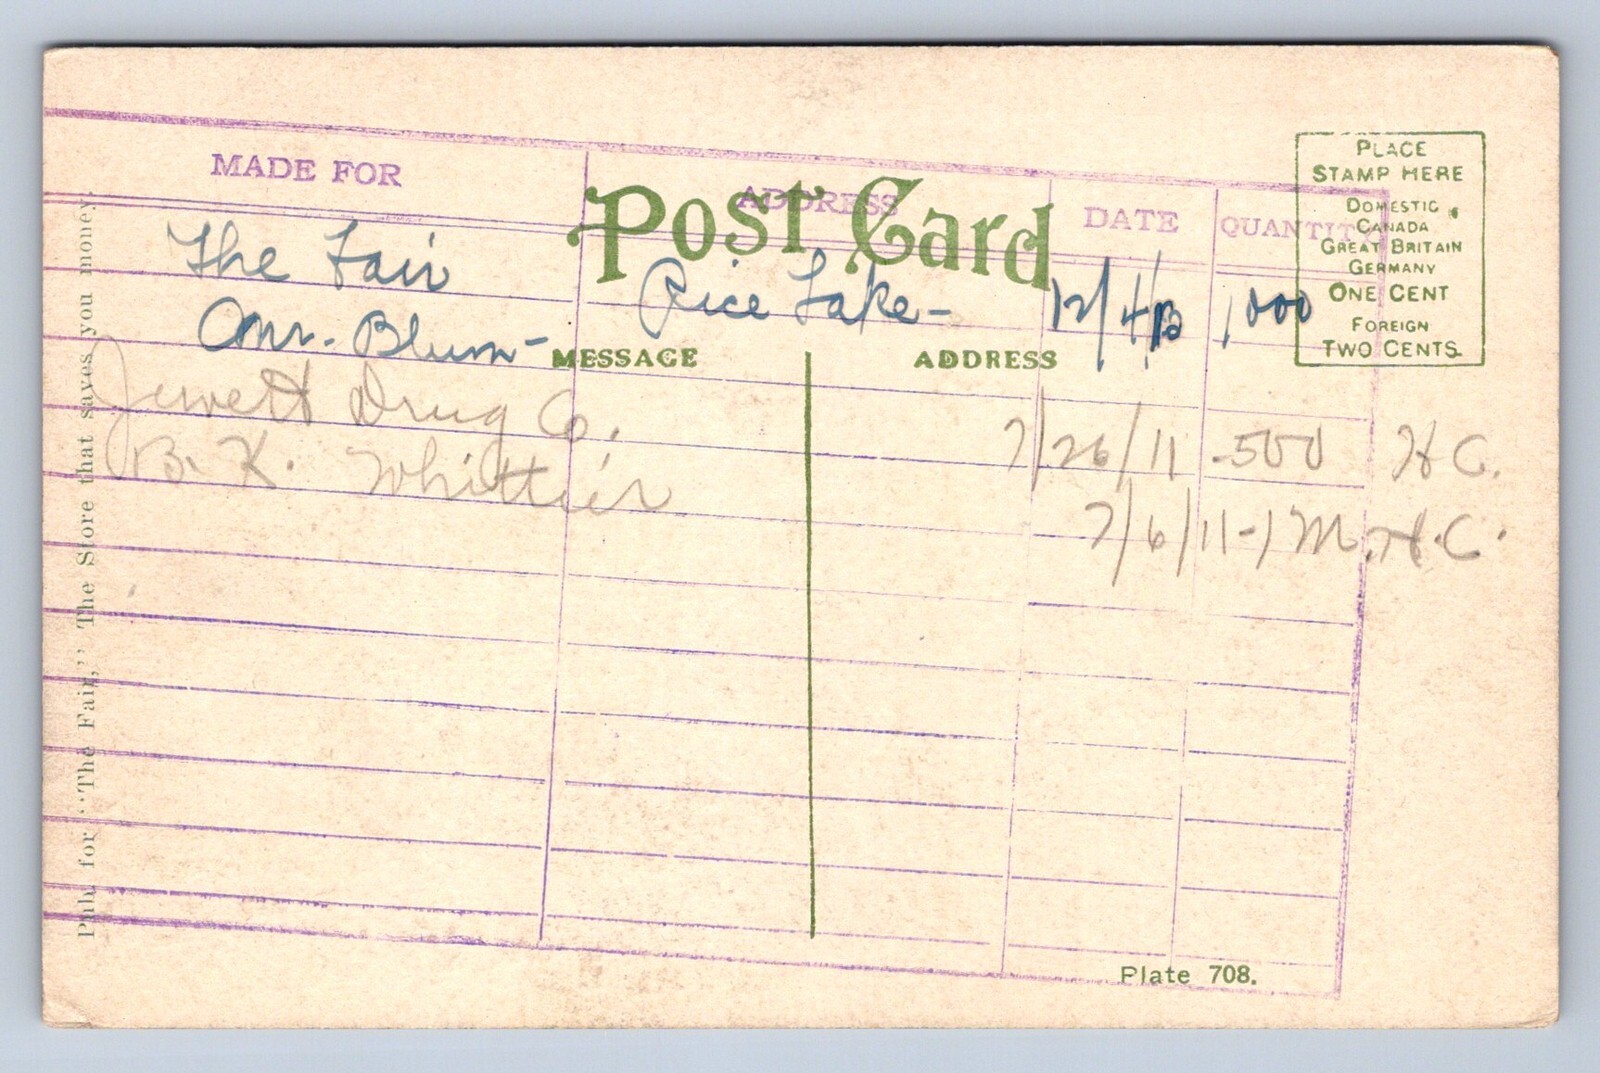 MADE FOR ADDRESS DATE QUANTITY
Post Card
PLACE
STAMP HERE
DOMESTIC
CANADA
GREAT BRITAIN
GERMANY
ONE CENT
FOREIGN
TWO CENTS
The Fair Rice Lake- 12/4/ 1000
Mr. Blum-
MESSAGE ADDRESS
Jewett Drug Co. 7/26/11 500 H C.
B. K. Whittier 7/6/11-1M. H.C.
Pub. for "The Fair," The Store that saves you money.
Plate 708.